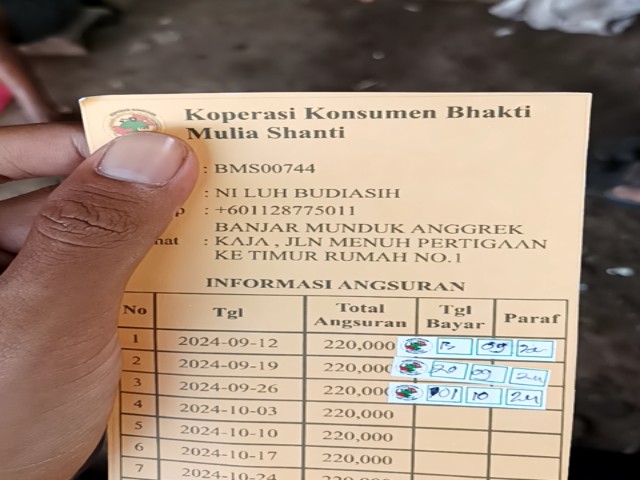 Koperasi Konsumen Bhakti
Mulia Shanti
: BMS00744
: NI LUH BUDIASIH
: +601128775011
BANJAR MUNDUK ANGGREK
: KAJA , JLN MENUH PERTIGAAN
KE TIMUR RUMAH NO.1
INFORMASI ANGSURAN
No Tgl Total Angsuran Tgl Bayar Paraf
1 2024-09-12 220,000 09
2 2024-09-19 220,000 20 09 24
3 2024-09-26 220,000 01 10 24
4 2024-10-03 220,000
5 2024-10-10 220,000
6 2024-10-17 220,000
7 2024-10-24 220,000